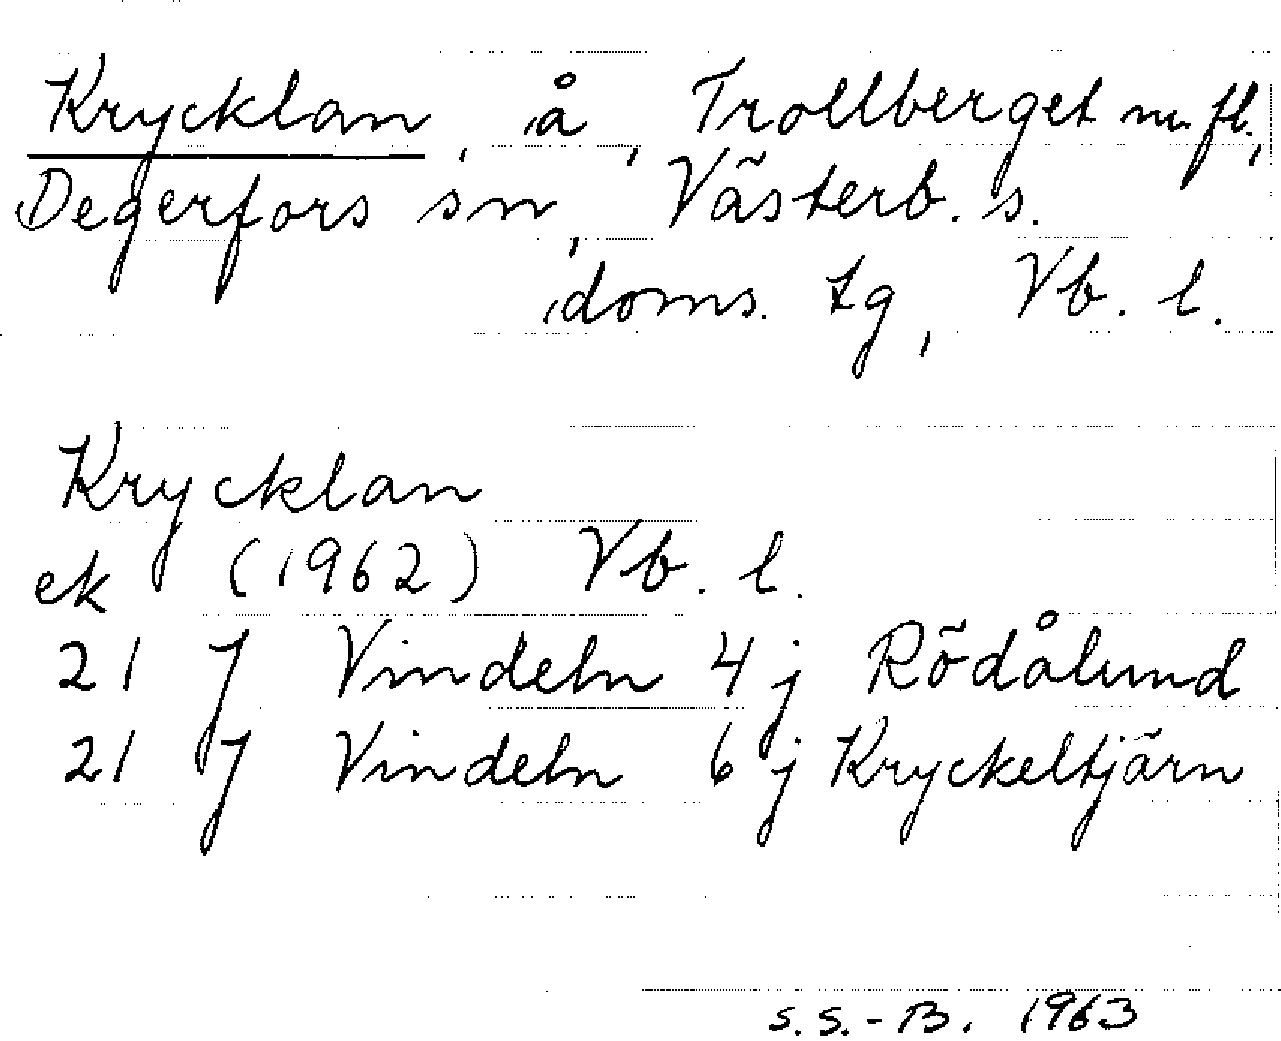 Krycklan, å, Trollberget m.fl.,
Degerfors sn, Västerb. s.
doms. tg, Vb. l.
Krycklan
ek (1962) Vb. l.
21 J Vindeln 4 j Rödålund
21 J Vindeln 6 j Kryckeltjärn
S.S.-B. 1963